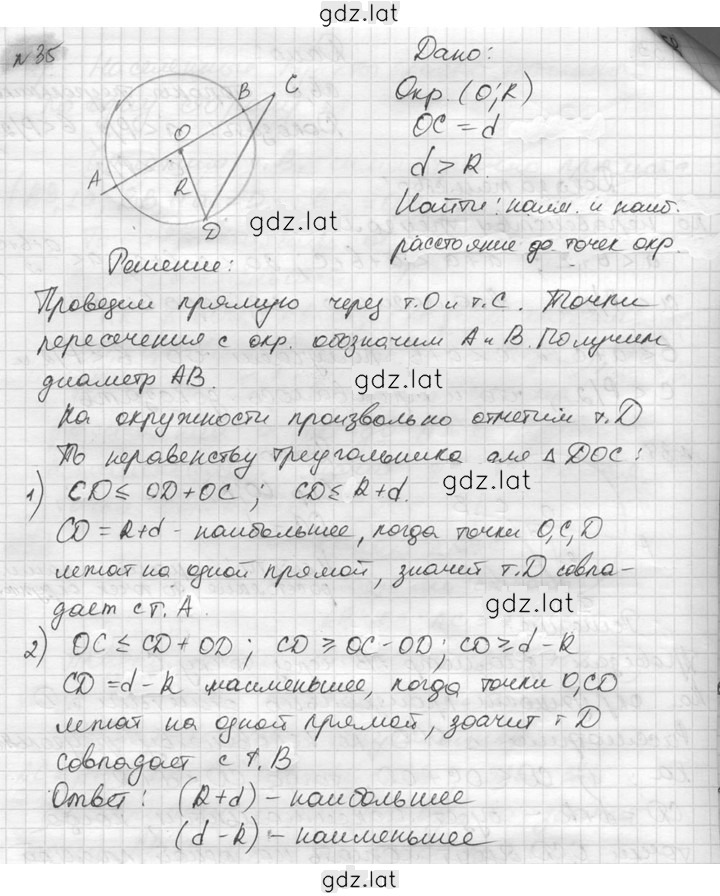 gdz.lat
№35
Дано:
Окр. (O; R)
OC = d
d > R.
Найти: наим. и наиб.
расстояние до точек окр.
A
O
B
C
R
D
gdz.lat
Решение:
Проведем прямую через т.О и т.С. Точки
пересечения с окр. обозначим А и В. Получим
диаметр АВ.
gdz.lat
На окружности произвольно отметим т.D
По неравенству треугольника для △ DOC:
1) CD ≤ OD + OC ; CD ≤ R + d.
gdz.lat
CD = R + d - наибольшее, когда точки О, С, D
лежат на одной прямой, значит т.D совпа-
дает с т. А.
gdz.lat
2) OC ≤ CD + OD ; CD ≥ OC - OD ; CD ≥ d - R
CD = d - R наименьшее, когда точки О, СD
лежат на одной прямой, значит т D
совпадает с т. В
Ответ: (R + d) - наибольшее
(d - R) - наименьшее
gdz.lat